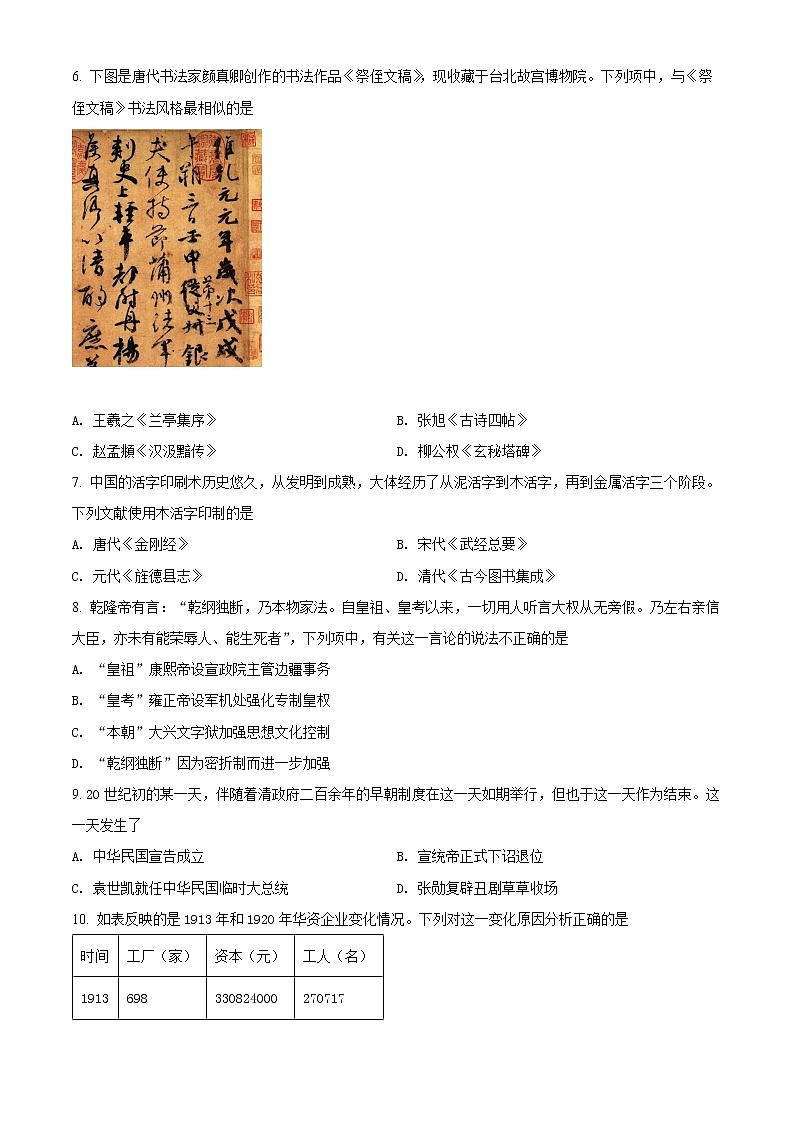 6. 下图是唐代书法家颜真卿创作的书法作品《祭侄文稿》，现收藏于台北故宫博物院。下列项中，与《祭
侄文稿》书法风格最相似的是
维乾元元年岁次戊戌
A. 王羲之《兰亭集序》 B. 张旭《古诗四帖》
C. 赵孟頫《汉汲黯传》 D. 柳公权《玄秘塔碑》
7. 中国的活字印刷术历史悠久，从发明到成熟，大体经历了从泥活字到木活字，再到金属活字三个阶段。
下列文献使用木活字印制的是
A. 唐代《金刚经》 B. 宋代《武经总要》
C. 元代《旌德县志》 D. 清代《古今图书集成》
8. 乾隆帝有言：“乾纲独断，乃本物家法。自皇祖、皇考以来，一切用人听言大权从无旁假。乃左右亲信
大臣，亦未有能荣辱人、能生死者”，下列项中，有关这一言论的说法不正确的是
A. “皇祖”康熙帝设宣政院主管边疆事务
B. “皇考”雍正帝设军机处强化专制皇权
C. “本朝”大兴文字狱加强思想文化控制
D. “乾纲独断”因为密折制而进一步加强
9. 20 世纪初的某一天，伴随着清政府二百余年的早朝制度在这一天如期举行，但也于这一天作为结束。这
一天发生了
A. 中华民国宣告成立 B. 宣统帝正式下诏退位
C. 袁世凯就任中华民国临时大总统 D. 张勋复辟丑剧草草收场
10. 如表反映的是 1913 年和 1920 年华资企业变化情况。下列对这一变化原因分析正确的是
时间 工厂（家） 资本（元） 工人（名）
1913 698 330824000 270717